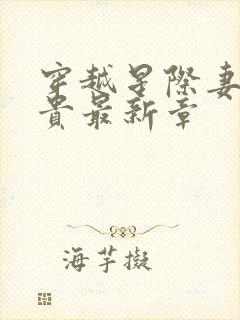 穿越星際妻
貴最新章
海芋擬